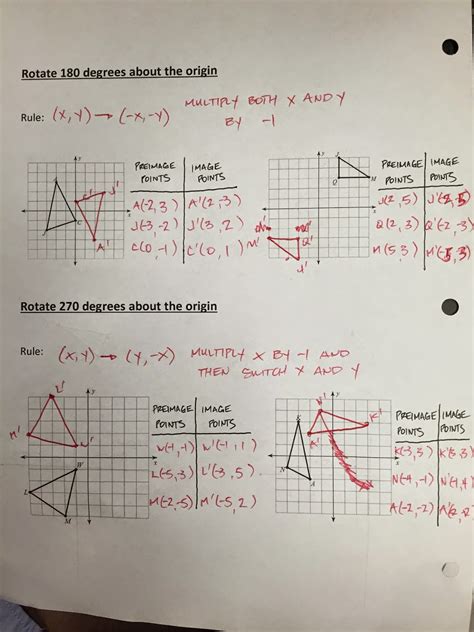 Rotate 180 degrees about the origin
MULTIPLY BOTH X AND Y
Rule: (X, Y) → (-X, -Y) BY -1
PREIMAGE POINTS IMAGE POINTS
A(-2, 3) A'(2, 3)
J(-3, -2) J'(3, 2)
C(0, -1) C'(0, 1)
PREIMAGE POINTS IMAGE POINTS
J(2, 5)
Q(2, 3) Q'(-2, -3)
M(5, 3)
Rotate 270 degrees about the origin
Rule: (X, Y) → (Y, -X) MULTIPLY X BY -1 AND
THEN SWITCH X AND Y
PREIMAGE POINTS IMAGE POINTS
W(-1, -1) W'(-1, 1)
L(-5, -3) L'(-3, 5)
M(-2, -5) M'(-5, 2)
PREIMAGE POINTS IMAGE POINTS
K(-3, 3) K'(3, 3)
N(-4, -1) N'(-1, 4)
A(-2, -2)